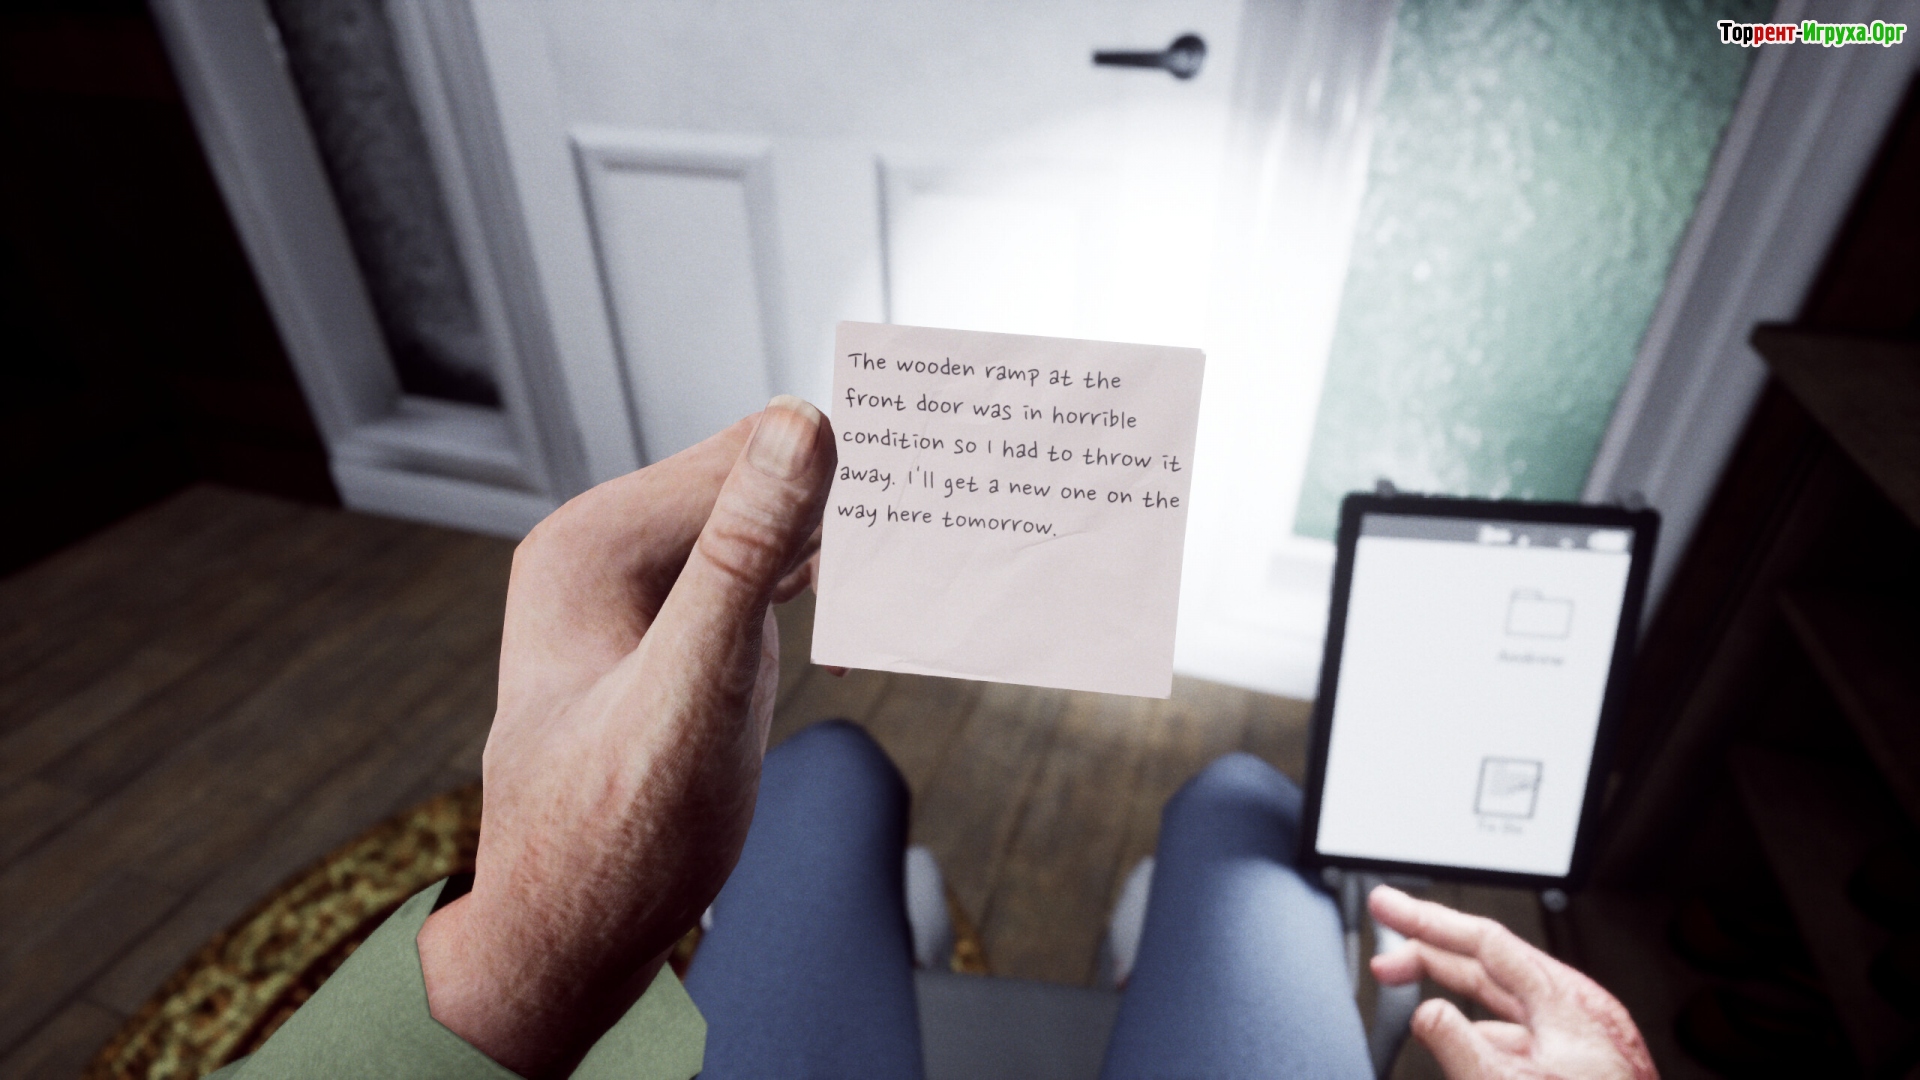 Торрент-Игруха.Орг
The wooden ramp at the
front door was in horrible
condition so I had to throw it
away. I'll get a new one on the
way here tomorrow.